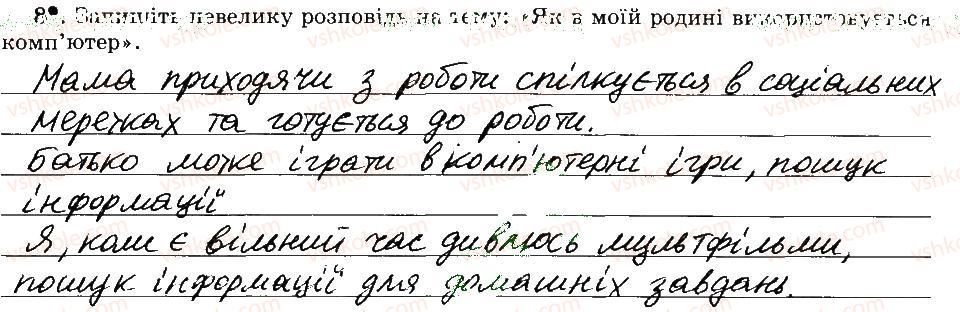 8•. Запишіть невелику розповідь на тему: «Як в моїй родині використовується
комп'ютер».
Мама приходячи з роботи спілкується в соціальних
мережах та готується до роботи.
Батько може іграти в комп'ютерні ігри, пошук
інформації
Я, коли є вільний час дивлюсь мультфільми,
пошук інформації для домашніх завдань.